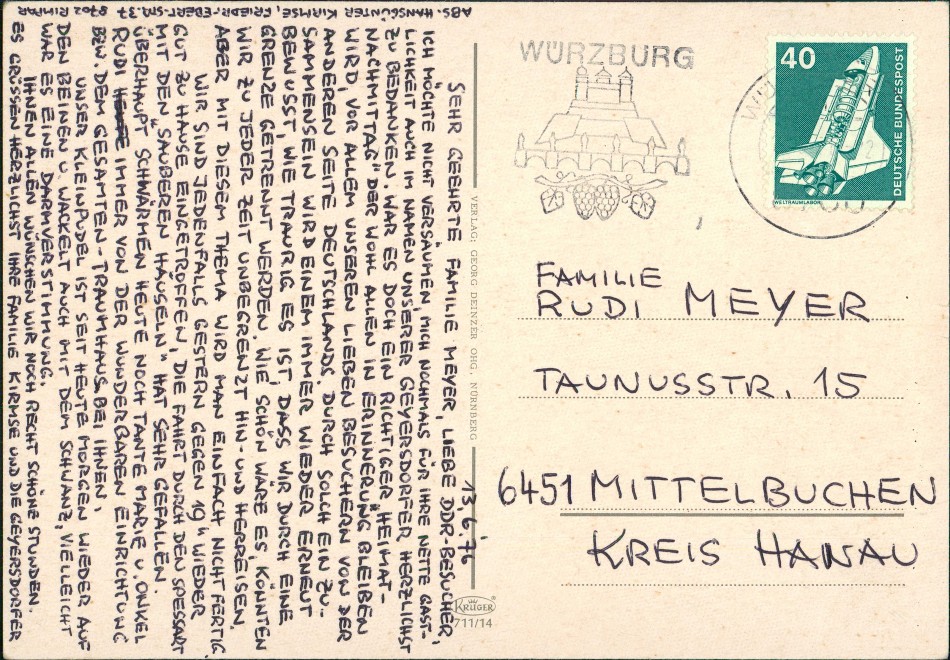 ABS. HANSGÜNTER KIRMSE, FRIEDR.-EBERT-STR. 37 8702 RIMPAR
13.6.76
SEHR GEEHRTE FAMILIE MEYER, LIEBE DDR-BESUCHER,
ICH MÖCHTE NICHT VERSÄUMEN MICH NOCHMALS FÜR IHRE NETTE GAST-
LICHKEIT AUCH IM NAMEN UNSERER GEYERSDORFER HERZLICHST
ZU BEDANKEN. WAR ES DOCH EIN RICHTIGER "HEIMAT-
NACHMITTAG" DER WOHL ALLEN IN ERINNERUNG BLEIBEN
WIRD, VOR ALLEM UNSEREN LIEBEN BESUCHERN VON DER
ANDEREN SEITE DEUTSCHLANDS. DURCH SOLCH EIN ZU-
SAMMENSEIN WIRD EINEM IMMER WIEDER ERNEUT
BEWUSST WIE TRAURIG ES IST, DASS WIR DURCH EINE
GRENZE GETRENNT WERDEN. WIE SCHÖN WÄRE ES, KÖNNTEN
WIR ZU JEDER ZEIT UNBEGRENZT HIN- UND HERREISEN.
ABER MIT DIESEM THEMA WIRD MAN EINFACH NICHT FERTIG
WIR SIND JEDENFALLS GESTERN GEGEN 19 WIEDER
GUT ZU HAUSE EINGETROFFEN, DIE FAHRT DURCH DEN SPESSART
MIT DEN "SAUBEREN HÄUSELN" HAT SEHR GEFALLEN.
ÜBERHAUPT SCHWÄRMEN HEUTE NOCH TANTE MARIE U. ONKEL
RUDI IMMER VON DER WUNDERBAREN EINRICHTUNG
BZW. DEM GESAMTEN-TRAUMHAUS BEI IHNEN.
UNSER KLEINPUDEL IST SEIT HEUTE MORGEN WIEDER AUF
DEN BEINEN U. WACKELT AUCH MIT DEM SCHWANZ, VIELLEICHT
WAR ES EINE DARMVERSTIMMUNG.
IHNEN ALLEN WÜNSCHEN WIR NOCH RECHT SCHÖNE STUNDEN.
ES GRÜSSEN HERZLICHST IHRE FAMILIE KIRMSE UND DIE GEYERSDORFER
VERLAG: GEORG DEINZER OHG. NÜRNBERG
KRÜGER
711/14
WÜRZBURG
40
DEUTSCHE BUNDESPOST
WELTRAUMLABOR
FAMILIE
RUDI MEYER
TAUNUSSTR. 15
6451 MITTELBUCHEN
KREIS HANAU